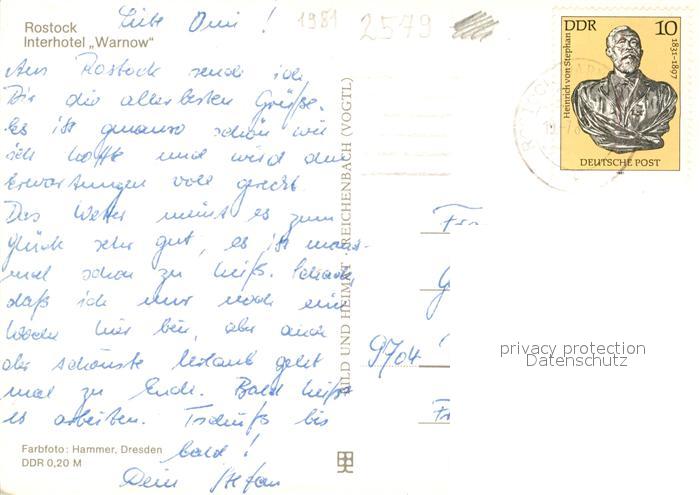 Rostock
Interhotel „Warnow"
Liebe Omi!
1981
2579
Aus Rostock sende ich
Dir die allerbesten Grüße.
Es ist genauso schön wie
ich hoffte und wird den
Erwartungen voll gerecht.
Das Wetter meint es zum
Glück sehr gut, es ist manch-
mal schon zu heiß. Schade
daß ich nur noch eine
Woche hier bin, aber auch
der schönste Urlaub geht
mal zu Ende. Bald heißt
es arbeiten. Tschüß bis
bald!
Dein Stefan
Farbfoto: Hammer, Dresden
DDR 0,20 M
BILD UND HEIMAT · REICHENBACH (VOGTL)
DDR 10
Heinrich von Stephan
1831-1897
DEUTSCHE POST
1981
9704
privacy protection
Datenschutz